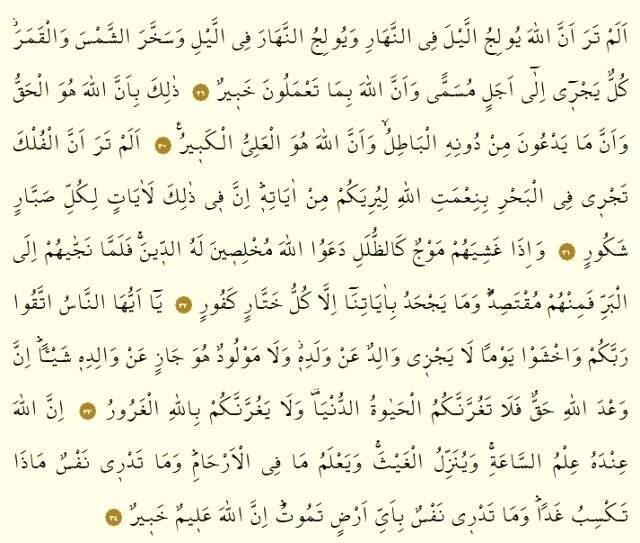 اَلَمْ تَرَ اَنَّ اللّٰهَ يُولِجُ الَّيْلَ فِى النَّهَارِ وَيُولِجُ النَّهَارَ فِى الَّيْلِ وَسَخَّرَ الشَّمْسَ وَالْقَمَرَۘ
كُلٌّ يَجْر۪ٓى اِلٰٓى اَجَلٍ مُسَمًّى وَاَنَّ اللّٰهَ بِمَا تَعْمَلُونَ خَب۪يرٌ ﴿٢٩﴾ ذٰلِكَ بِاَنَّ اللّٰهَ هُوَ الْحَقُّ
وَاَنَّ مَا يَدْعُونَ مِنْ دُونِهِ الْبَاطِلُۙ وَاَنَّ اللّٰهَ هُوَ الْعَلِىُّ الْكَب۪يرُ۟ ﴿٣٠﴾ اَلَمْ تَرَ اَنَّ الْفُلْكَ
تَجْر۪ى فِى الْبَحْرِ بِنِعْمَتِ اللّٰهِ لِيُرِيَكُمْ مِنْ اٰيَاتِه۪ۜ اِنَّ ف۪ى ذٰلِكَ لَاٰيَاتٍ لِكُلِّ صَبَّارٍ
شَكُورٍ ﴿٣١﴾ وَاِذَا غَشِيَهُمْ مَوْجٌ كَالظُّلَلِ دَعَوُا اللّٰهَ مُخْلِص۪ينَ لَهُ الدّ۪ينَۚ فَلَمَّا نَجّٰيهُمْ اِلَى
الْبَرِّ فَمِنْهُمْ مُقْتَصِدٌۜ وَمَا يَجْحَدُ بِاٰيَاتِنَٓا اِلَّا كُلُّ خَتَّارٍ كَفُورٍ ﴿٣٢﴾ يَٓا اَيُّهَا النَّاسُ اتَّقُوا
رَبَّكُمْ وَاخْشَوْا يَوْمًا لَا يَجْز۪ى وَالِدٌ عَنْ وَلَدِه۪ۘ وَلَا مَوْلُودٌ هُوَ جَازٍ عَنْ وَالِدِه۪ شَيْـًٔاۜ اِنَّ
وَعْدَ اللّٰهِ حَقٌّ فَلَا تَغُرَّنَّكُمُ الْحَيٰوةُ الدُّنْيَا۠ وَلَا يَغُرَّنَّكُمْ بِاللّٰهِ الْغَرُورُ ﴿٣٣﴾ اِنَّ اللّٰهَ
عِنْدَهُ عِلْمُ السَّاعَةِۚ وَيُنَزِّلُ الْغَيْثَۚ وَيَعْلَمُ مَا فِى الْاَرْحَامِۜ وَمَا تَدْر۪ى نَفْسٌ مَاذَا
تَكْسِبُ غَدًاۜ وَمَا تَدْر۪ى نَفْسٌ بِاَىِّ اَرْضٍ تَمُوتُۜ اِنَّ اللّٰهَ عَل۪يمٌ خَب۪يرٌ ﴿٣٤﴾